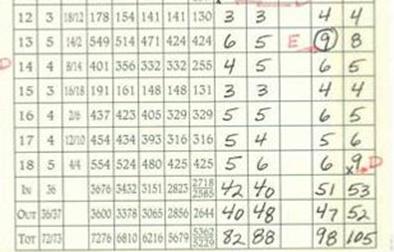 12 3 18/12 178 154 141 141 130 3 3 4 4
13 5 14/2 549 514 471 424 424 6 5 E 9 8
D 14 4 8/14 401 356 332 332 255 4 5 6 5
15 3 16/18 191 161 148 148 131 3 3 4 4
16 4 2/6 437 423 405 329 329 5 5 6 5
17 4 12/10 454 434 393 316 316 5 4 5 6
18 5 4/4 554 524 480 425 425 5 6 6 x9 D
IN 36 3676 3432 3151 2823 2718 2565 42 40 51 53
OUT 36/37 3600 3378 3065 2856 2644 40 48 47 52
TOT 72/73 7276 6810 6216 5679 5362 5229 82 88 98 105